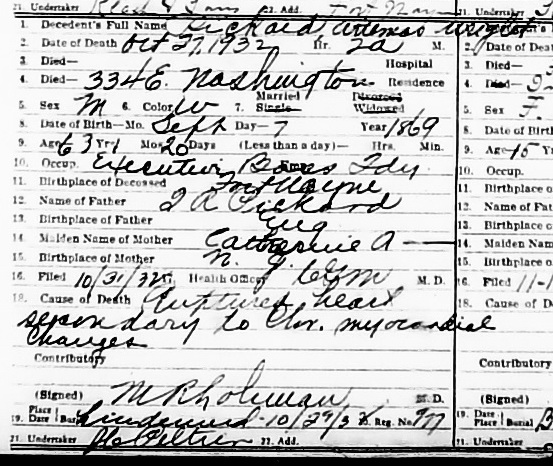 21. Undertaker Klaehn & Sons 22. Add. Fort Wayne 21. Undertaker
1. Decedent's Full Name Pickard, Thomas Wright 1. Decedent's
2. Date of Death Oct 27, 1932 Hr. 2a M. 2. Date of Death
3. Died— Hospital 3. Died—
4. Died— 334 E. Washington Residence 4. Died— 9
5. Sex M 6. Color W 7. Married Single Divorced Widowed 5. Sex F.
8. Date of Birth—Mo. Sept Day— 7 Year 1869 8. Date of Birth
9. Age 63 Yrs 1 Mos 20 Days (Less than a day)— Hrs. Min. 9. Age 15 Yr
10. Occup. Executive Bass Fdy. 10. Occup.
11. Birthplace of Deceased Fort Wayne 11. Birthplace o
12. Name of Father T R Pickard 12. Name of Fat
13. Birthplace of Father Eng 13. Birthplace of
14. Maiden Name of Mother Catherine A — 14. Maiden Nam
15. Birthplace of Mother N. J. 15. Birthplace of
16. Filed 10/31/32 Health Officer M. D. 16. Filed 11-1
18. Cause of Death Ruptured heart 18. Cause of D
secondary to Chr. myocardial
changes
Contributory Contributory
(Signed) M. D. (Signed)
19. Place Date Burial Lindenwood - 10/29/32 20. Reg. No. 977 19. Date Place Burial
21. Undertaker Peltier 22. Add. 21. Undertaker